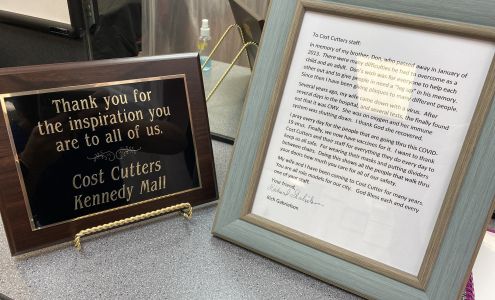 Thank you for
the inspiration you
are to all of us.
Cost Cutters
Kennedy Mall
To Cost Cutters staff:
In memory of my brother, Don, who passed away in January of
2013. There were many difficulties he had to overcome as a
child and an adult. Don's wish was for everyone to help each
other out and to give people in need a "leg up" in his memory.
Since then I have been giving plaques to many different people.
Several years ago, my wife came down with a virus. After
several days in the hospital, and several tests, the finally found
out that it was CMV. She was on oxygen and her immune
system was shutting down. I thank God she recovered.
I pray every day for the people that are going thru this COVID
19 virus. Finally, we now have vaccines for it. I want to thank
Cost Cutters and their staff for everything they do every day to
keep us all safe. For wearing their masks and putting dividers
between chairs. Doing this shows all the people that walk thru
your doors how much you care for all of our safety.
My wife and I have been coming to Cost Cutter for many years.
You are all role models for our city. God Bless each and every
one of your staff.
Your friend,
Rich Gabrielson